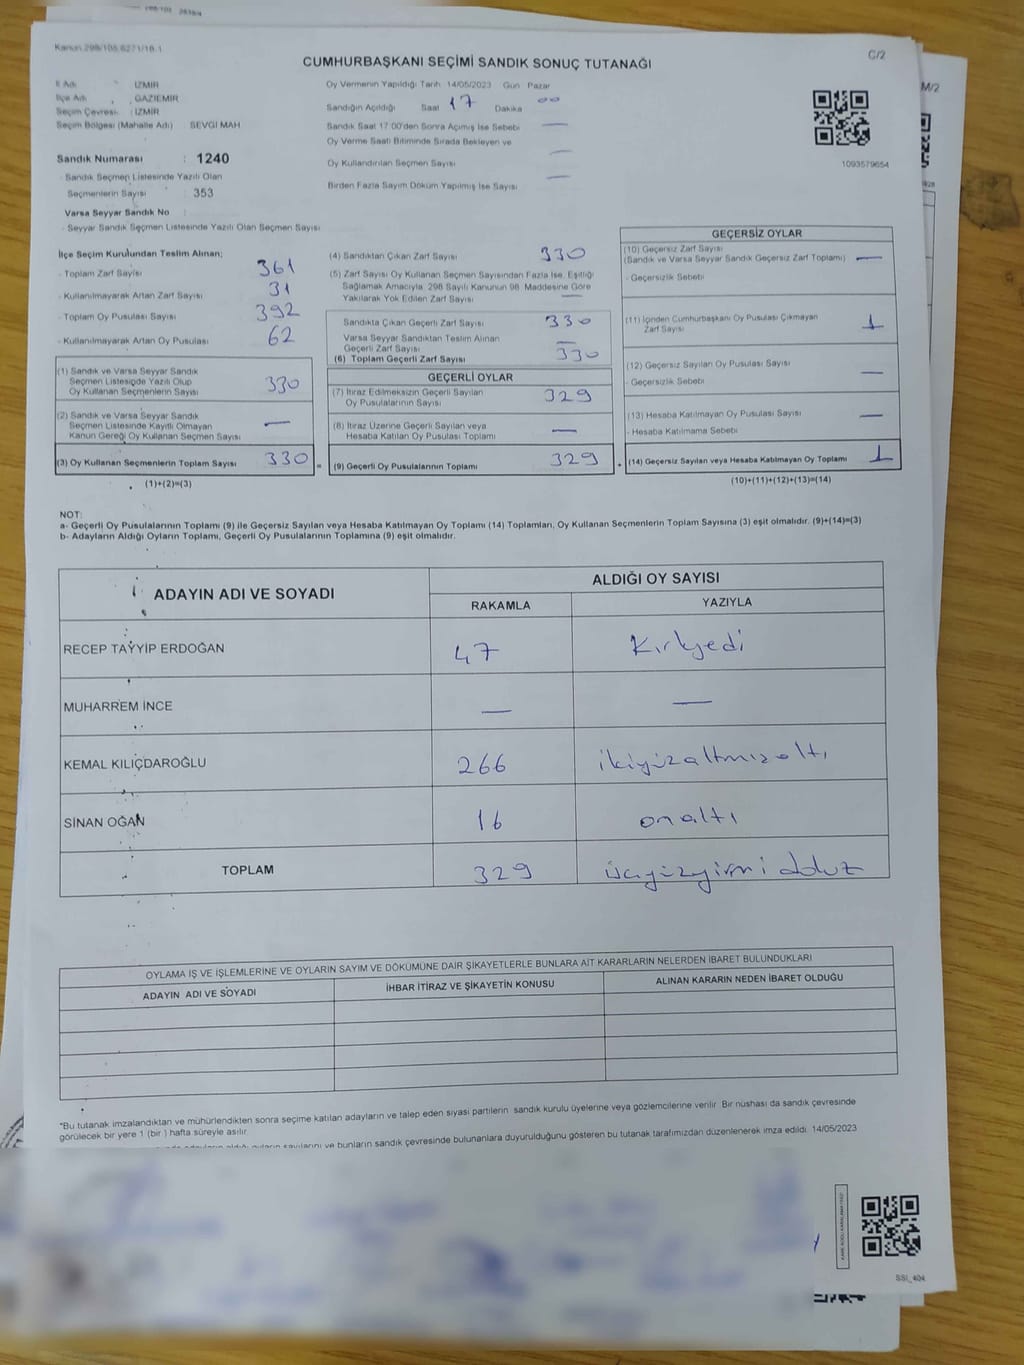 Kanun 298/105,6271/16.1
CUMHURBAŞKANI SEÇİMİ SANDIK SONUÇ TUTANAĞI
C/2
M/2
İl Adı : İZMİR
İlçe Adı : GAZİEMİR
Seçim Çevresi : İZMİR
Seçim Bölgesi (Mahalle Adı) SEVGİ MAH
Oy Vermenin Yapıldığı Tarih 14/05/2023 Gün Pazar
Sandığın Açıldığı Saat 17 Dakika 00
Sandık Saat 17:00'den Sonra Açılmış İse Sebebi —
Oy Verme Saati Bitiminde Sırada Bekleyen ve
Oy Kullandırılan Seçmen Sayısı —
Birden Fazla Sayım Döküm Yapılmış İse Sayısı —
1093579654
Sandık Numarası : 1240
- Sandık Seçmen Listesinde Yazılı Olan
Seçmenlerin Sayısı : 353
Varsa Seyyar Sandık No :
- Seyyar Sandık Seçmen Listesinde Yazılı Olan Seçmen Sayısı
İlçe Seçim Kurulundan Teslim Alınan;
- Toplam Zarf Sayısı 361
- Kullanılmayarak Artan Zarf Sayısı 31
- Toplam Oy Pusulası Sayısı 392
- Kullanılmayarak Artan Oy Pusulası 62
(1) Sandık ve Varsa Seyyar Sandık
Seçmen Listesinde Yazılı Olup
Oy Kullanan Seçmenlerin Sayısı 330
(2) Sandık ve Varsa Seyyar Sandık
Seçmen Listesinde Kayıtlı Olmayan
Kanun Gereği Oy Kullanan Seçmen Sayısı —
(3) Oy Kullanan Seçmenlerin Toplam Sayısı 330 =
(1)+(2)=(3)
(4) Sandıktan Çıkan Zarf Sayısı 330
(5) Zarf Sayısı Oy Kullanan Seçmen Sayısından Fazla İse, Eşitliği
Sağlamak Amacıyla, 298 Sayılı Kanunun 98. Maddesine Göre
Yakılarak Yok Edilen Zarf Sayısı —
Sandıkta Çıkan Geçerli Zarf Sayısı 330
Varsa Seyyar Sandıktan Teslim Alınan
Geçerli Zarf Sayısı —
(6) Toplam Geçerli Zarf Sayısı 330
GEÇERLİ OYLAR
(7) İtiraz Edilmeksizin Geçerli Sayılan
Oy Pusulalarının Sayısı 329
(8) İtiraz Üzerine Geçerli Sayılan veya
Hesaba Katılan Oy Pusulası Toplamı —
(9) Geçerli Oy Pusulalarının Toplamı 329 +
GEÇERSİZ OYLAR
(10) Geçersiz Zarf Sayısı
(Sandık ve Varsa Seyyar Sandık Geçersiz Zarf Toplamı) —
- Geçersizlik Sebebi
(11) İçinden Cumhurbaşkanı Oy Pusulası Çıkmayan
Zarf Sayısı 1
(12) Geçersiz Sayılan Oy Pusulası Sayısı —
- Geçersizlik Sebebi
(13) Hesaba Katılmayan Oy Pusulası Sayısı —
- Hesaba Katılmama Sebebi
(14) Geçersiz Sayılan veya Hesaba Katılmayan Oy Toplamı 1
(10)+(11)+(12)+(13)=(14)
NOT:
a- Geçerli Oy Pusulalarının Toplamı (9) ile Geçersiz Sayılan veya Hesaba Katılmayan Oy Toplamı (14) Toplamları, Oy Kullanan Seçmenlerin Toplam Sayısına (3) eşit olmalıdır. (9)+(14)=(3)
b- Adayların Aldığı Oyların Toplamı, Geçerli Oy Pusulalarının Toplamına (9) eşit olmalıdır.
ADAYIN ADI VE SOYADI
ALDIĞI OY SAYISI
RAKAMLA YAZIYLA
RECEP TAYYİP ERDOĞAN 47 Kırkyedi
MUHARREM İNCE — —
KEMAL KILIÇDAROĞLU 266 ikiyüzaltmışaltı
SİNAN OĞAN 16 onaltı
TOPLAM 329 üçyüzyirmi dokuz
OYLAMA İŞ VE İŞLEMLERİNE VE OYLARIN SAYIM VE DÖKÜMÜNE DAİR ŞİKAYETLERLE BUNLARA AİT KARARLARIN NELERDEN İBARET BULUNDUKLARI
ADAYIN ADI VE SOYADI İHBAR İTİRAZ VE ŞİKAYETİN KONUSU ALINAN KARARIN NEDEN İBARET OLDUĞU
*Bu tutanak imzalandıktan ve mühürlendikten sonra seçime katılan adayların ve talep eden siyasi partilerin sandık kurulu üyelerine veya gözlemcilerine verilir. Bir nüshası da sandık çevresinde
görülecek bir yere 1 (bir) hafta süreyle asılır.
ve bunların sandık çevresinde bulunanlara duyurulduğunu gösteren bu tutanak tarafımızdan düzenlenerek imza edildi. 14/05/2023
SSİ_404